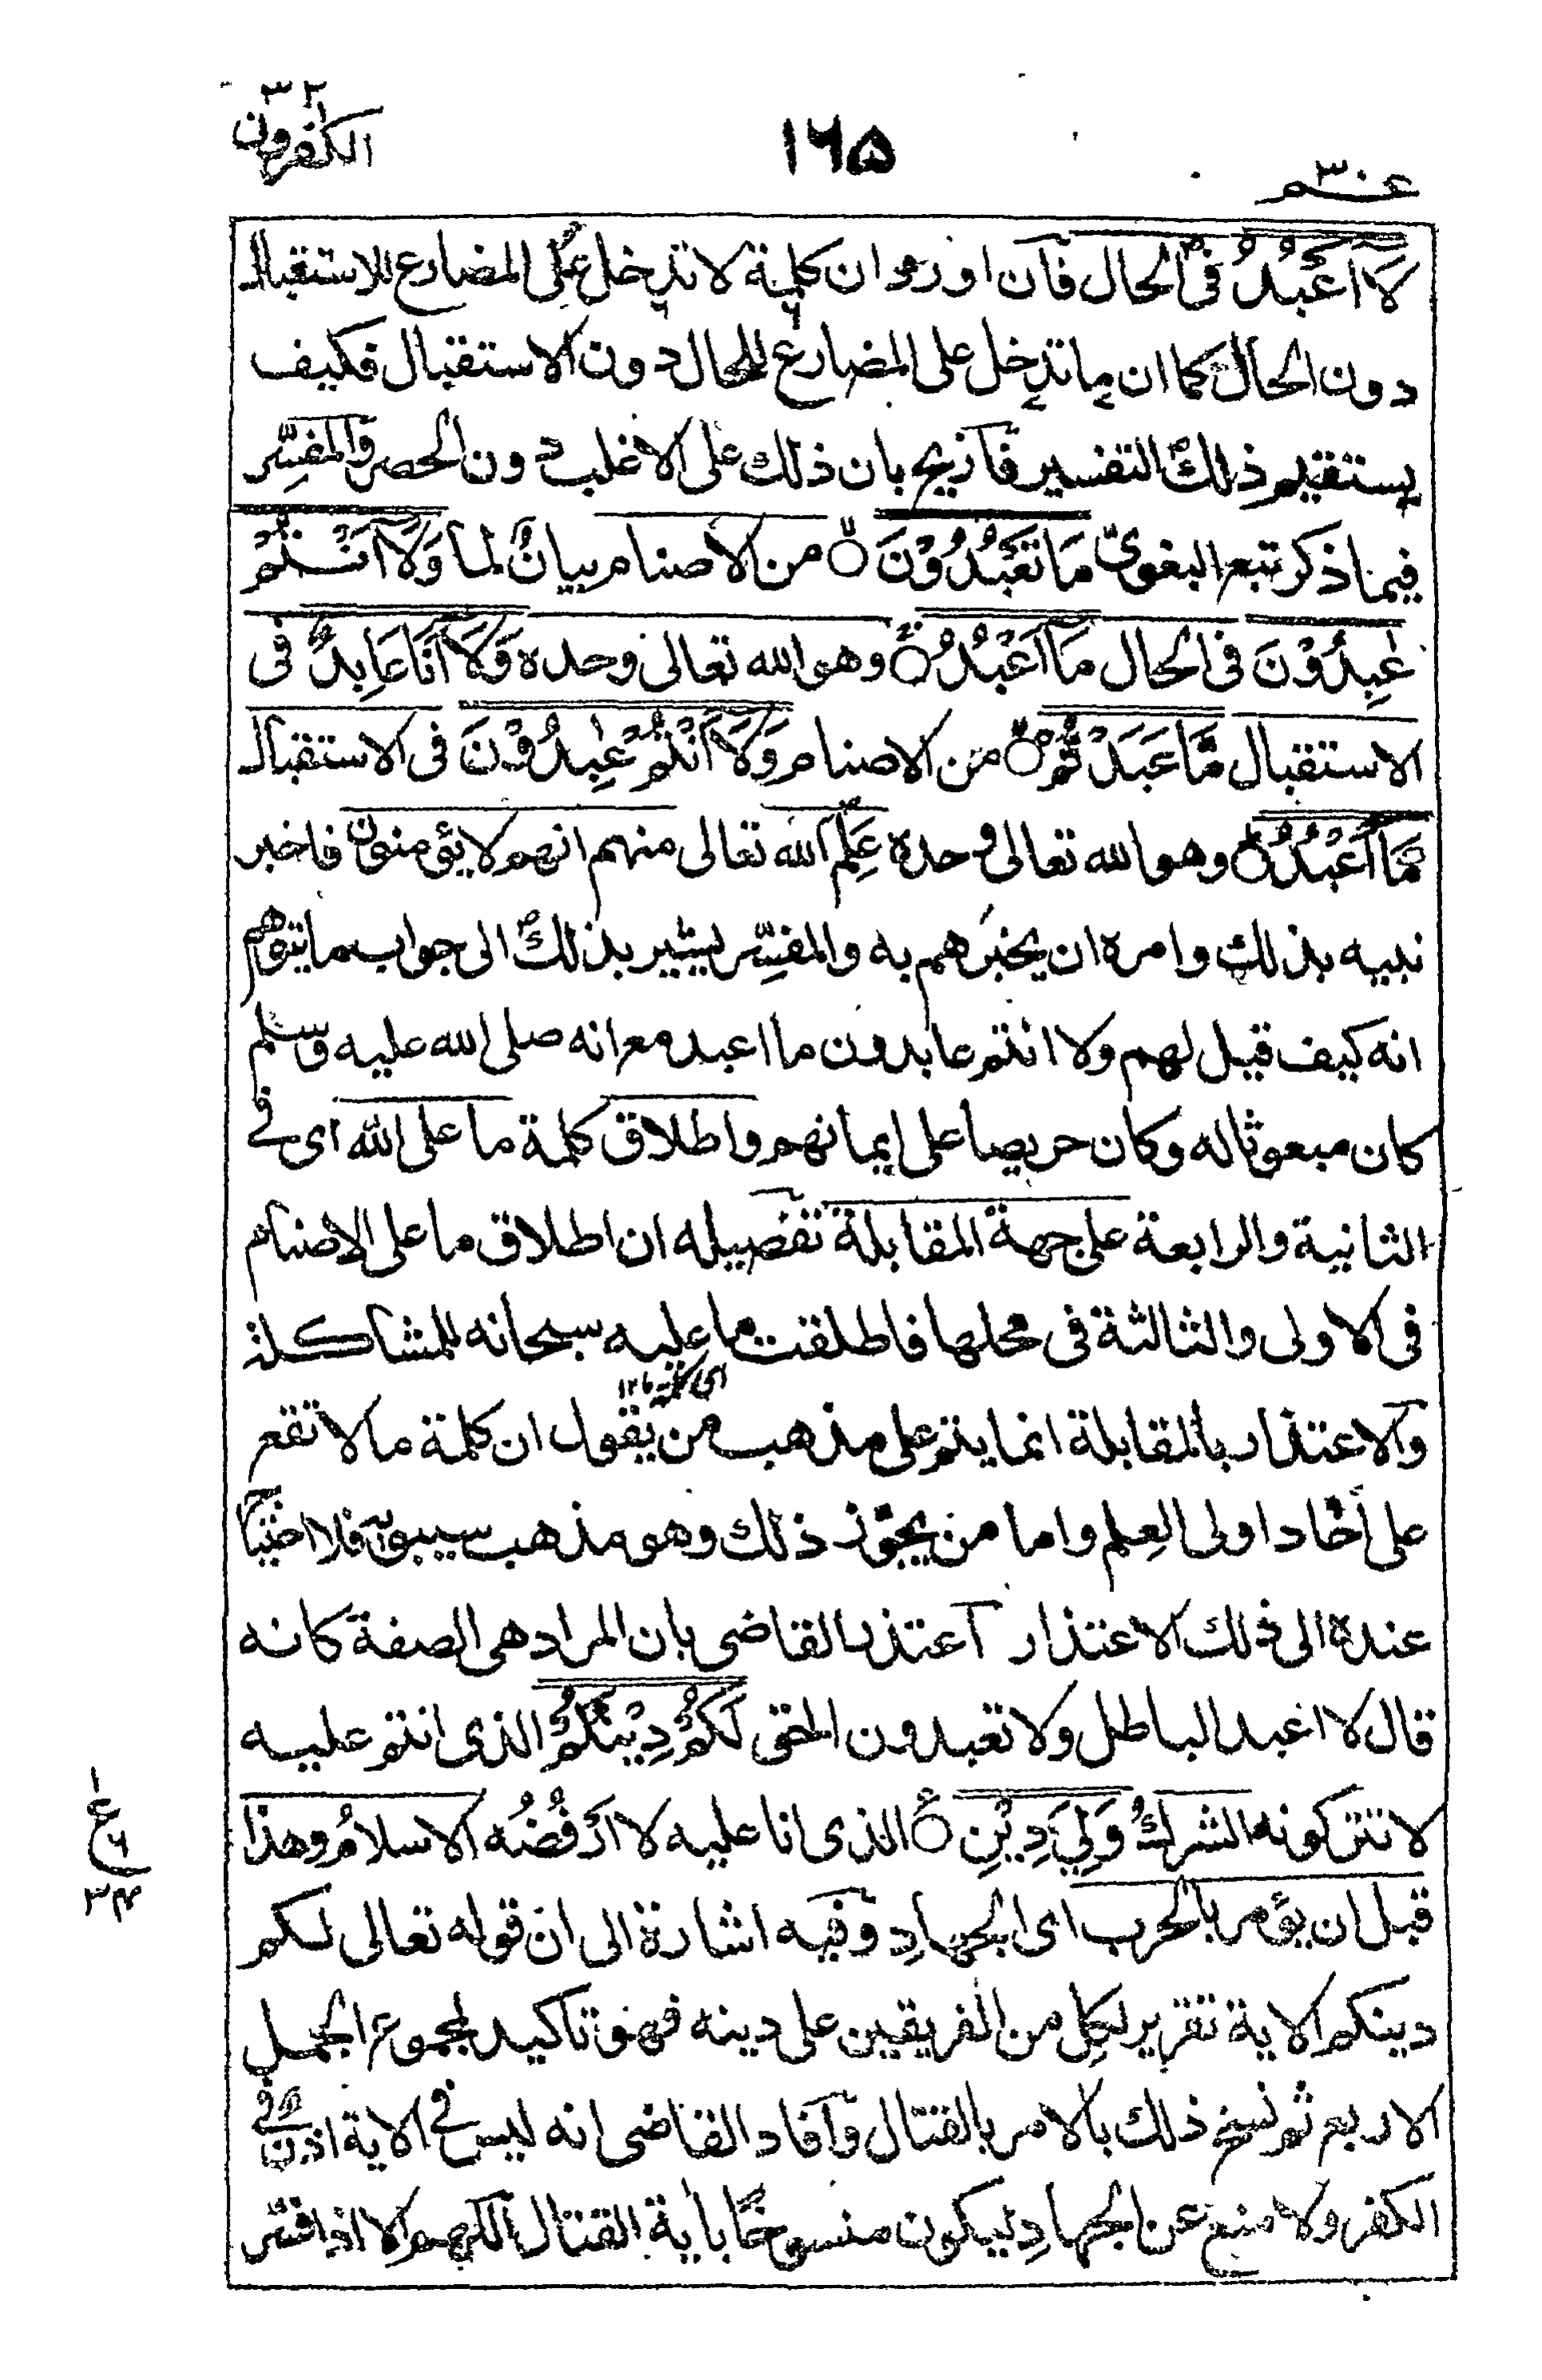 الكفرون
١٦٥
عم ٣٠
لَآ اَعْبُدُ فى الحال فان اورد ان كلمة لا تدخل على المضارع للاستقبال
دون الحال كما ان ما تدخل على المضارع للحال دون الاستقبال فكيف
يستقيم ذلك التفسير فازيح بان ذلك على الاغلب دون الحصر والمفسِّر
فيما ذكر تبع البغوىّ مَا تَعْبُدُوْنَ ۙ من الاصنام بيانٌ لما وَلَآ اَنْتُمْ
عٰبِدُوْنَ فى الحال مَآ اَعْبُدُ ۚ وهو الله تعالى وحده وَلَآ اَنَا عَابِدٌ فى
الاستقبال مَّا عَبَدْتُّمْ ۙ من الاصنام وَلَآ اَنْتُمْ عٰبِدُوْنَ فى الاستقبال
مَآ اَعْبُدُ ؕ وهو الله تعالى وحده عَلِمَ الله تعالى منهم انهم لا يؤمنون فاخبر
نبيه بذلك وامره ان يخبرَهم به والمفسِّر يشير بذلك الى جواب ما يتوهم
انه كيف قيل لهم ولا انتم عابدون ما اعبد مع انه صلى الله عليه وسلم
كان مبعوثا له وكان حريصا على ايمانهم واطلاق كلمة ما على الله اى فى
الثانية والرابعة على جهة المقابلة تفصيله ان اطلاق ما على الاصنام
فى الاولى والثالثة فى محلها فاطلقت ما عليه سبحانه للمشاكلة
اى كلمة ما ١٢
والاعتذار بالمقابلة انما يتم على مذهب من يقول ان كلمة ما لا تقع
على اٰحاد اولى العِلم واما من يجوّز ذلك وهو مذهب سيبويه فلا احتياج
عنده الى ذلك الاعتذار اعتذر القاضى بان المراد هى الصفة كانه
قال لا اعبد الباطل ولا تعبدون الحق لَكُمْ دِيْنُكُمْ الذى انتم عليه
لا تتركونه الشرك وَلِيَ دِيْنِ ۠ الذى انا عليه لا ارْفُضُه الاسلامُ وهذا
ع
٦
٣٤
قبل ان يؤمر بالحرب اى الجهادِ وفيه اشارة الى ان قوله تعالى لكم
دينكم الاية تقرير لكلٍ من الفريقين على دينه فهو تاكيد لمجموع الجمل
الاربع ثم نسخ ذلك بالامر بالقتال وافاد القاضى انه ليس فى الاية اذن فى
الكفر ولا منع عن الجهادِ ليكون منسوخًا باية القتال اللهم الا اذا فسّر